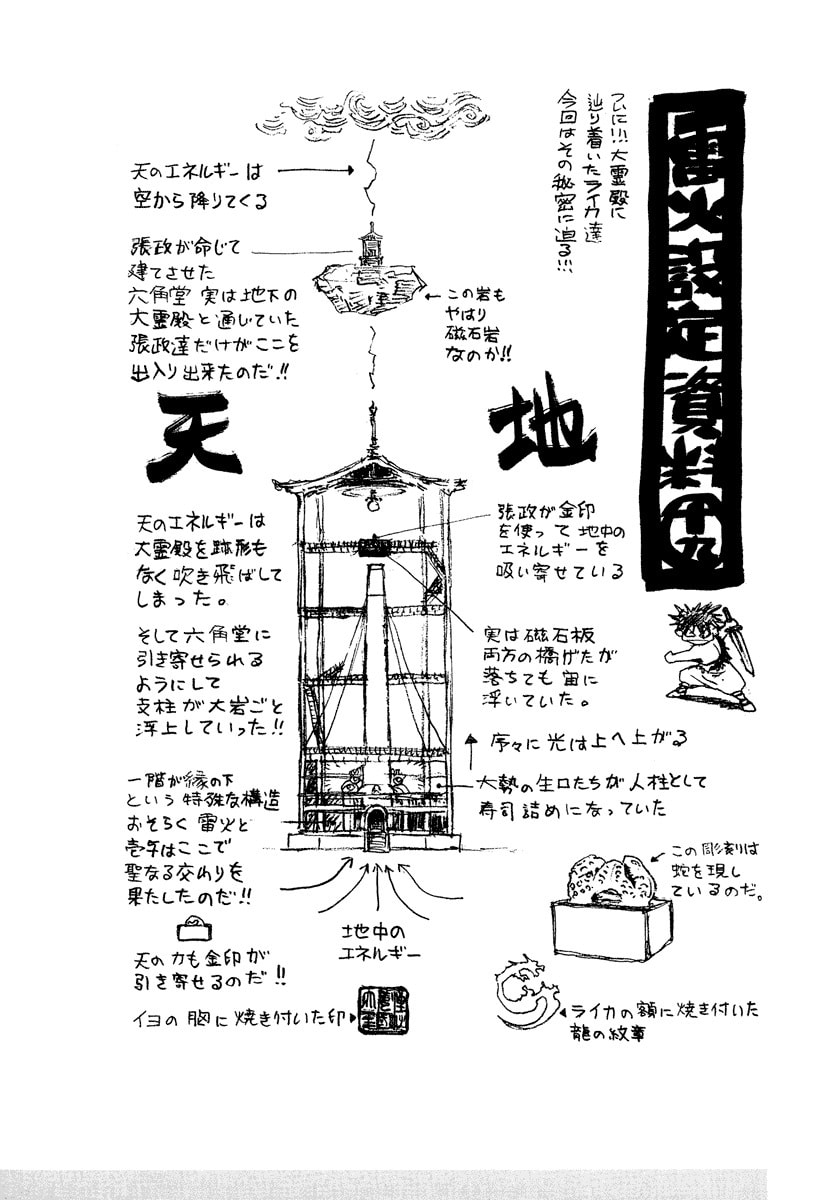 雷火設定資料【十九】
ついに!!!大霊殿に
辿り着いたライカ達
今回はその秘密に迫る!!!
天のエネルギーは
空から降りてくる
張政が命じて
建てさせた
六角堂 実は地下の
大霊殿と通じていた
張政達だけがここを
出入り出来たのだ!!
この岩も
やはり
磁石岩
なのか!!
天
地
天のエネルギーは
大霊殿を跡形も
なく吹き飛ばして
しまった。
そして六角堂に
引き寄せられる
ようにして
支柱が大岩ごと
浮上していった!!
張政が金印
を使って地中の
エネルギーを
吸い寄せている
実は磁石板
両方の橋げたが
落ちても宙に
浮いていた。
序々に光は上へ上がる
大勢の生口たちが人柱として
寿司詰めになっていた
一階が縁の下
という特殊な構造
おそらく雷火と
壱与はここで
聖なる交わりを
果たしたのだ!!
天の力も金印が
引き寄せるのだ!!
地中の
エネルギー
この彫刻は
蛇を現し
ているのだ。
イヨの胸に焼き付いた印
ライカの額に焼き付いた
龍の紋章